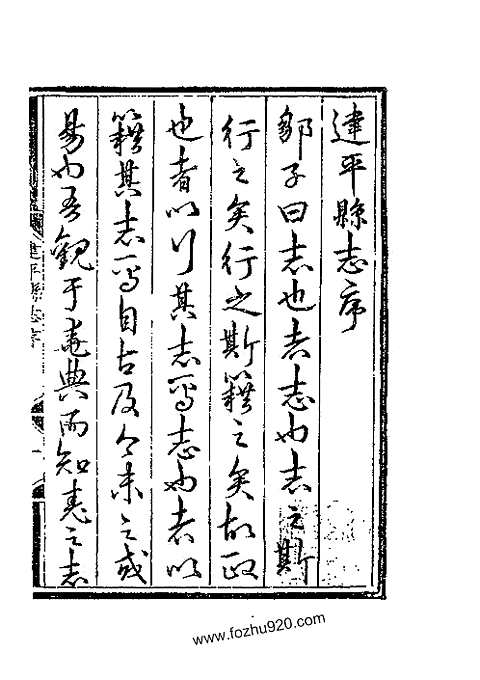 建平縣志序
鄒子曰志也者志也志之斯
行之矣行之斯籍之矣故政
也者以行其志焉志也者以
籍其志焉自古及今未之或
易也吾觀于堯典而知堯之志
建平縣志序
www.fozhu920.com